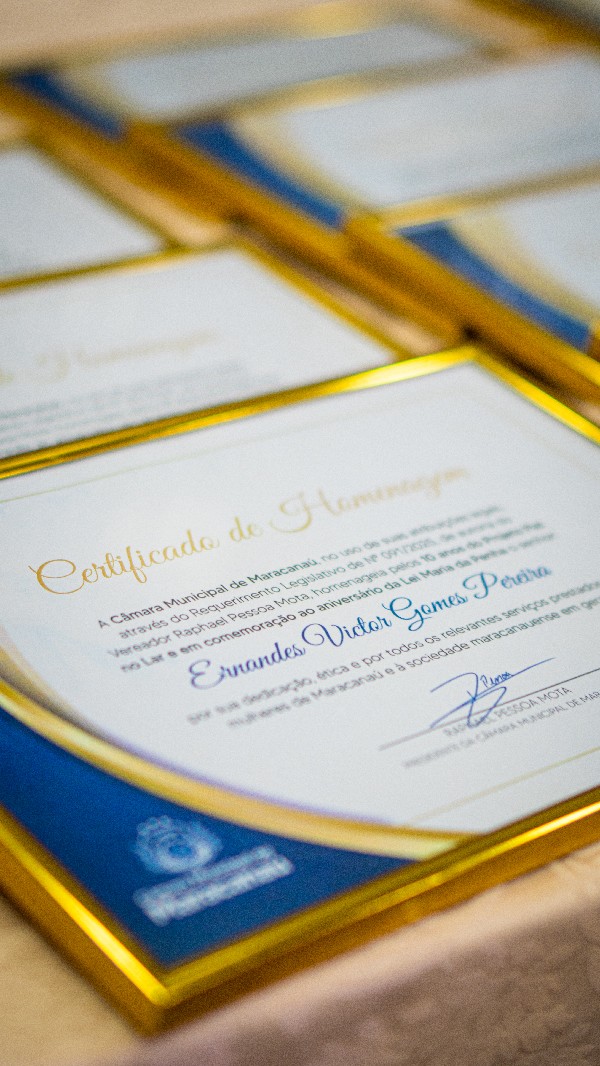 de Homenagem
Certificado de Homenagem
A Câmara Municipal de Maracanaú, no uso de suas atribuições legais,
através do Requerimento Legislativo de Nº 091/2025, de autoria do
Vereador Raphael Pessoa Mota, homenageia pelos 10 anos do Projeto Paz
no Lar e em comemoração ao aniversário da Lei Maria da Penha o senhor
Ernandes Victor Gomes Pereira
por sua dedicação, ética e por todos os relevantes serviços prestados
mulheres de Maracanaú e à sociedade maracanauense em geral
RAPHAEL PESSOA MOTA
PRESIDENTE DA CÂMARA MUNICIPAL DE MAR
Maracanaú